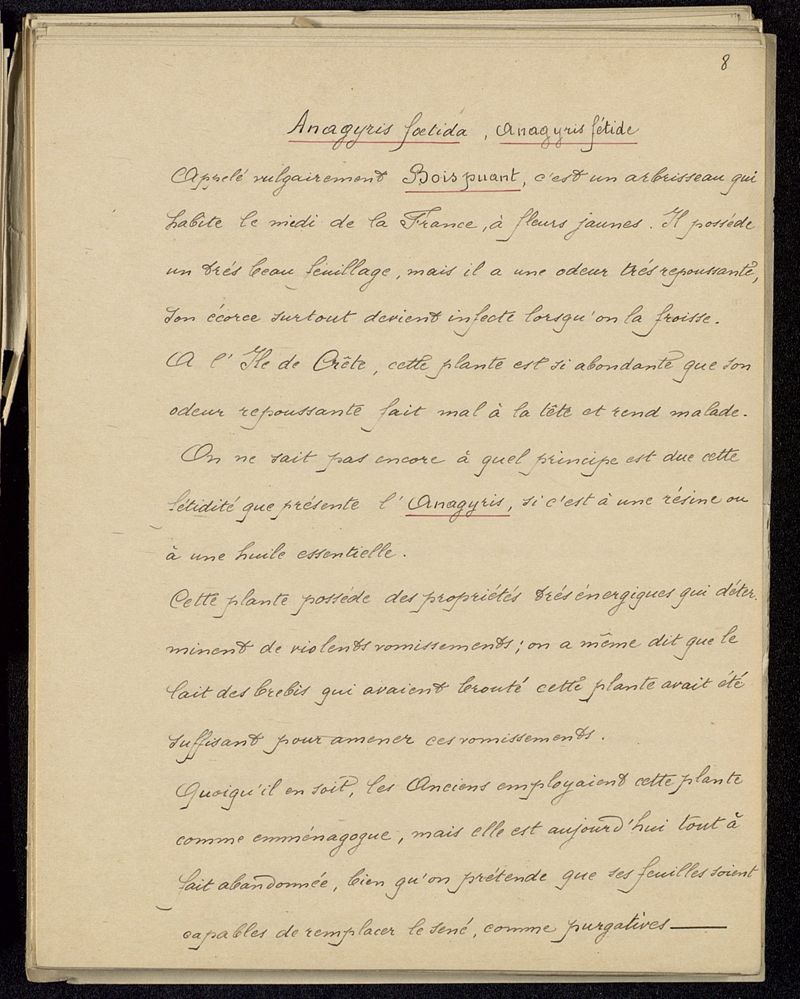 8
Anagyris fœtida, Anagyris fétide
Appelé vulgairement Bois puant, c'est un arbrisseau qui
habite le midi de la France, à fleurs jaunes. Il possède
un très beau feuillage, mais il a une odeur très repoussante,
son écorce surtout devient infecte lorsqu'on la froisse.
A l'Ile de Crête, cette plante est si abondante que son
odeur repoussante fait mal à la tête et rend malade.
On ne sait pas encore à quel principe est due cette
fétidité que présente l'Anagyris, si c'est à une résine ou
à une huile essentielle.
Cette plante possède des propriétés très énergiques qui déter-
minent de violents vomissements; on a même dit que le
lait des brebis qui avaient brouté cette plante avait été
suffisant pour amener ces vomissements.
Quoiqu'il en soit, les Anciens employaient cette plante
comme emménagogue, mais elle est aujourd'hui tout à
fait abandonnée, bien qu'on prétende que ses feuilles soient
capables de remplacer le séné, comme purgatives —